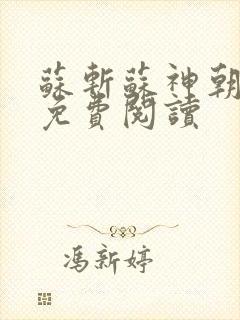 蘇斬蘇神朝
免費閱讀
馮新婷